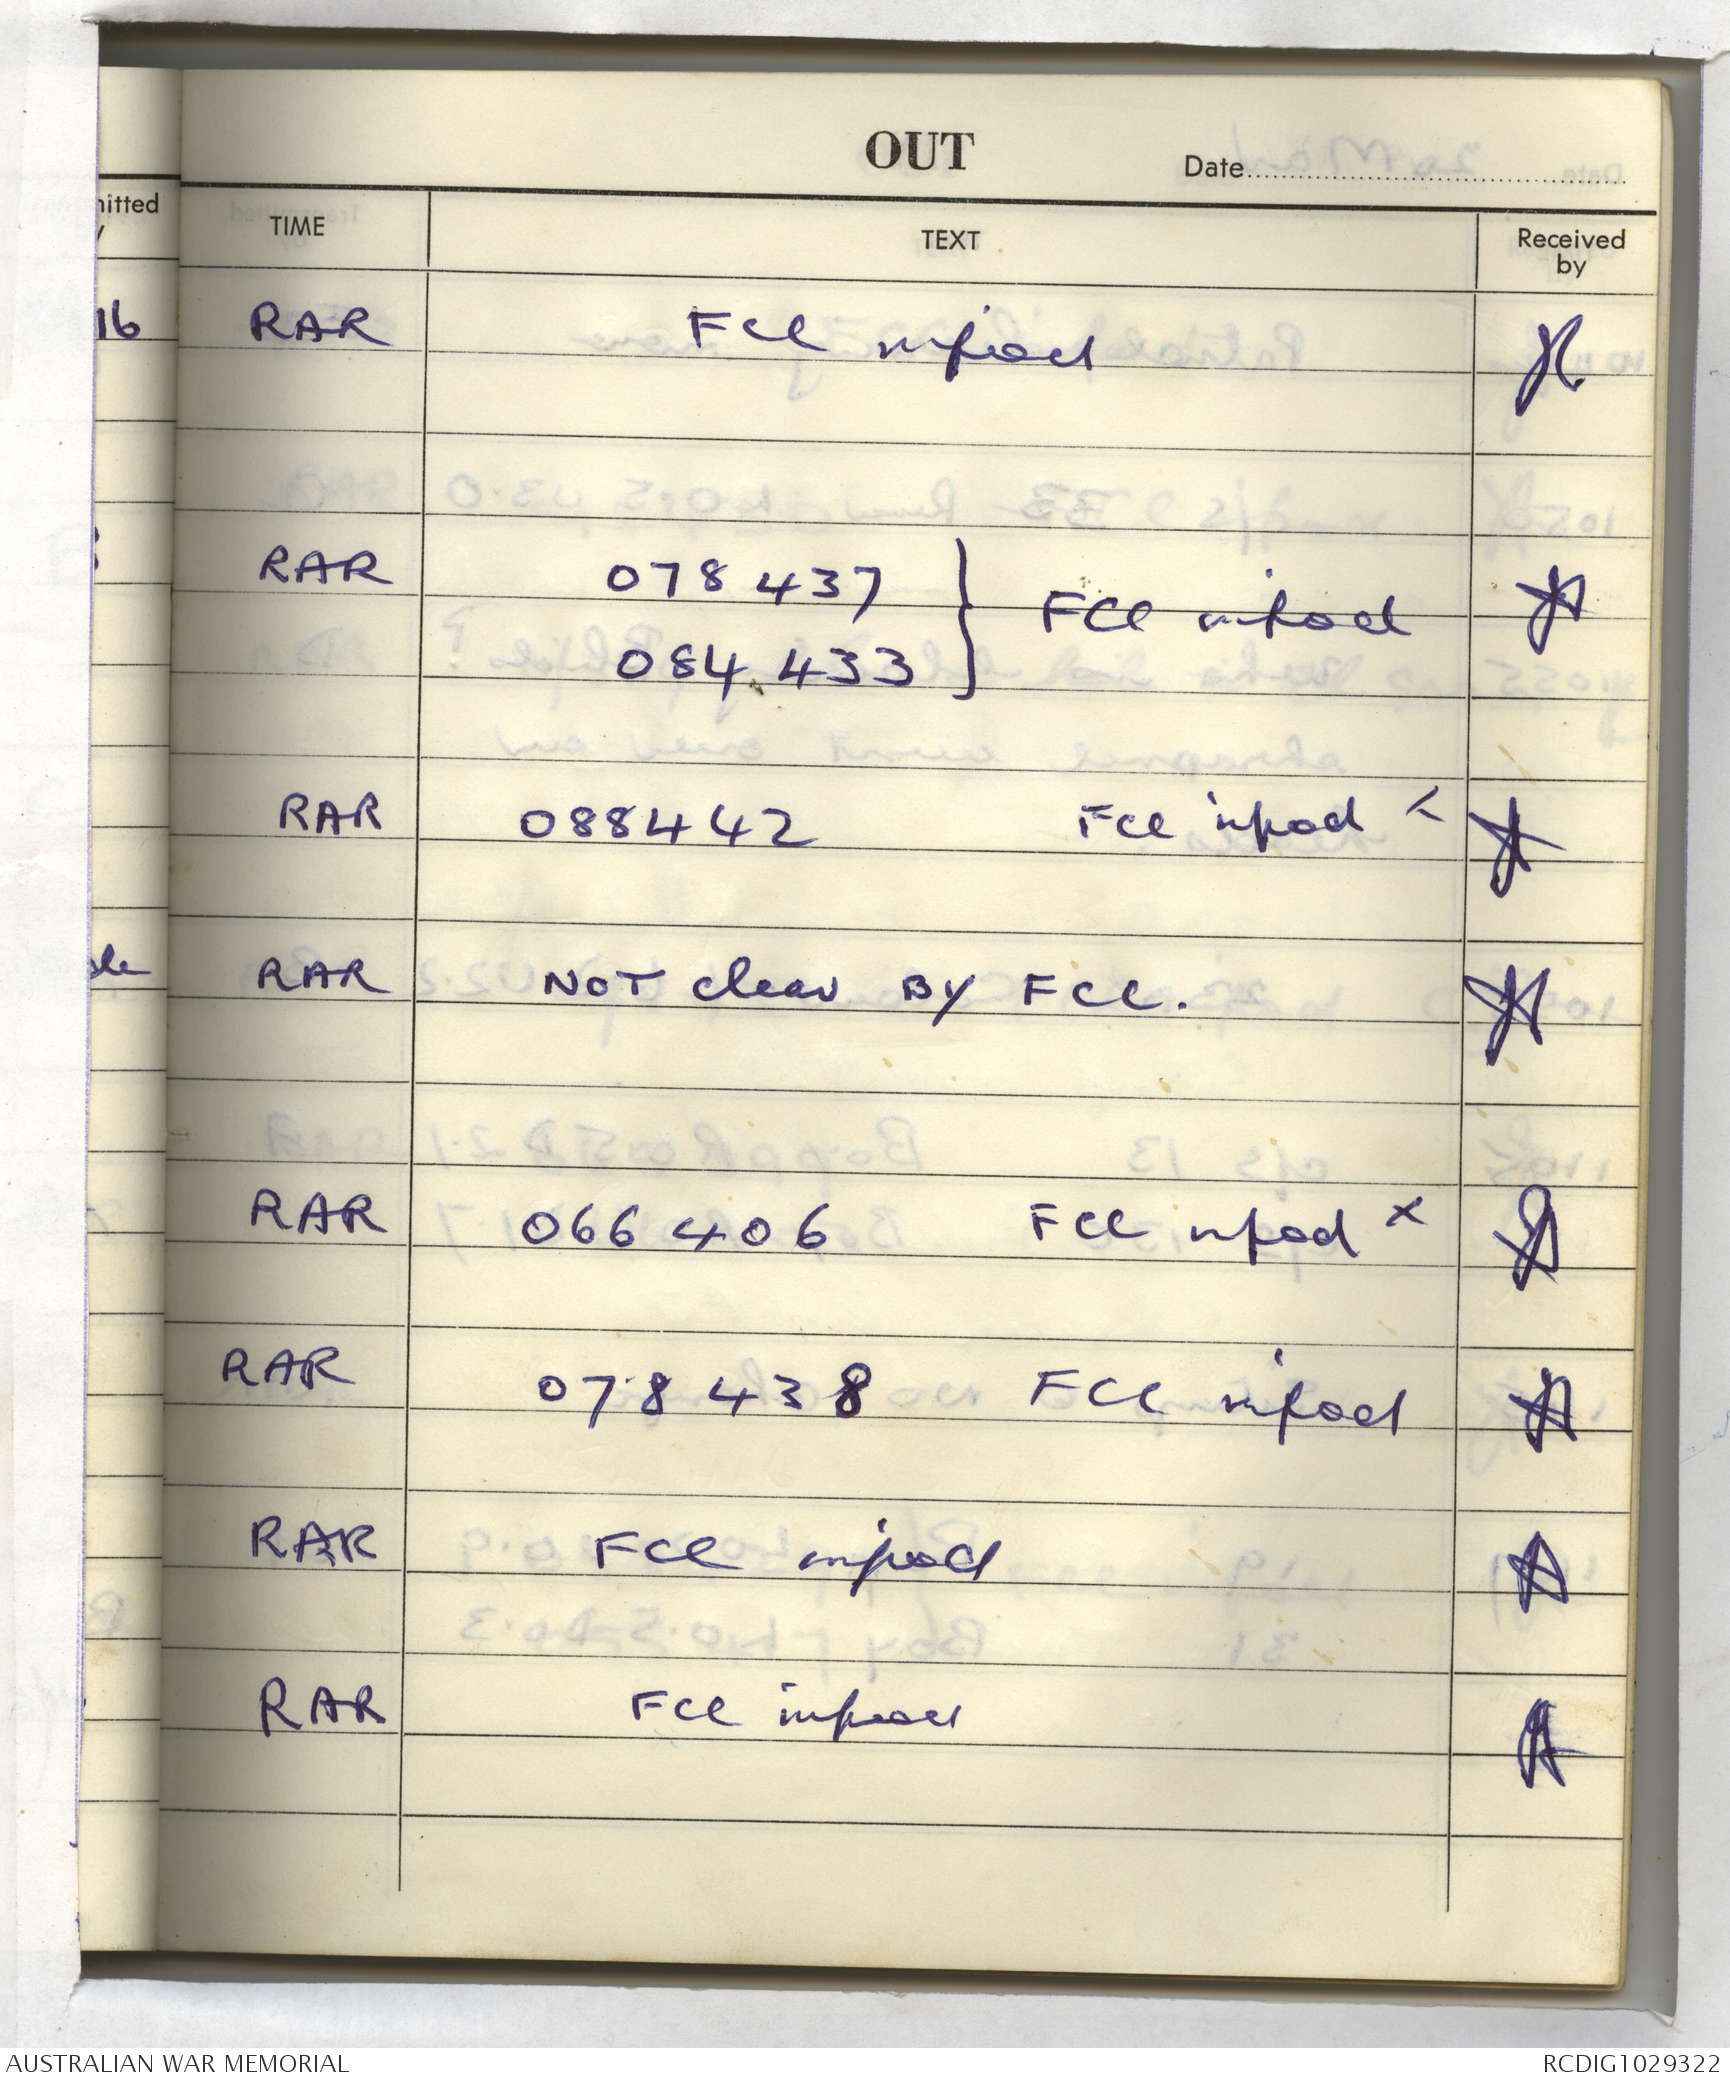 OUT
Date
mitted
TIME
TEXT
Received
by
16
RAR
FCC infood
RAR
078 437
084 433
FCC infood
RAR
088442
FCC infood
RAR
NOT clear BY FCC.
RAR
066 406
FCC infood x
RAR
078 438
FCC infood
RAR
FCC infood
RAR
FCC infood
AUSTRALIAN WAR MEMORIAL
RCDIG1029322